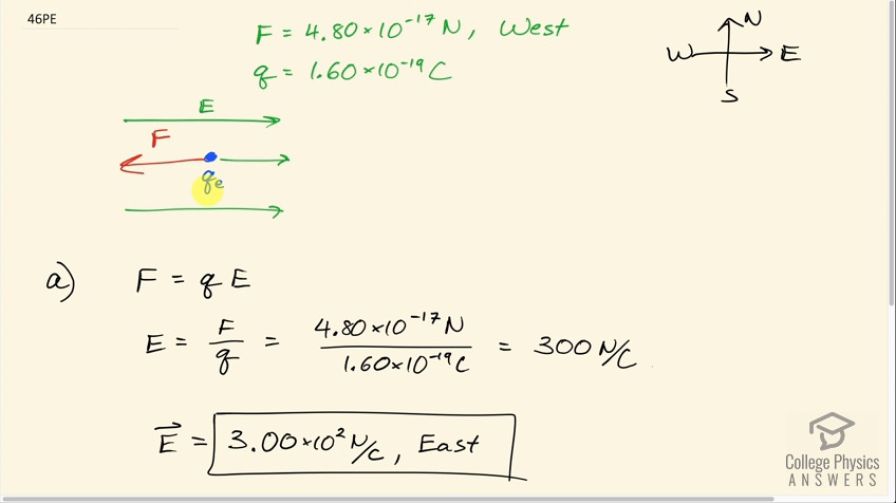 46PE
F = 4.80×10⁻¹⁷ N, West
q = 1.60×10⁻¹⁹ C
N
W E
S
E
F
qe
a) F = q E
E = F/q = 4.80×10⁻¹⁷ N / 1.60×10⁻¹⁹ C = 300 N/C
E⃗ = 3.00×10² N/C, East
College Physics
ANSWERS